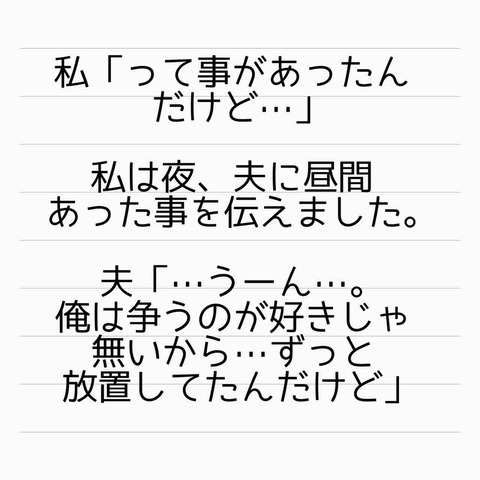 私「って事があったん
だけど…」
私は夜、夫に昼間
あった事を伝えました。
夫「…うーん…。
俺は争うのが好きじゃ
無いから…ずっと
放置してたんだけど」